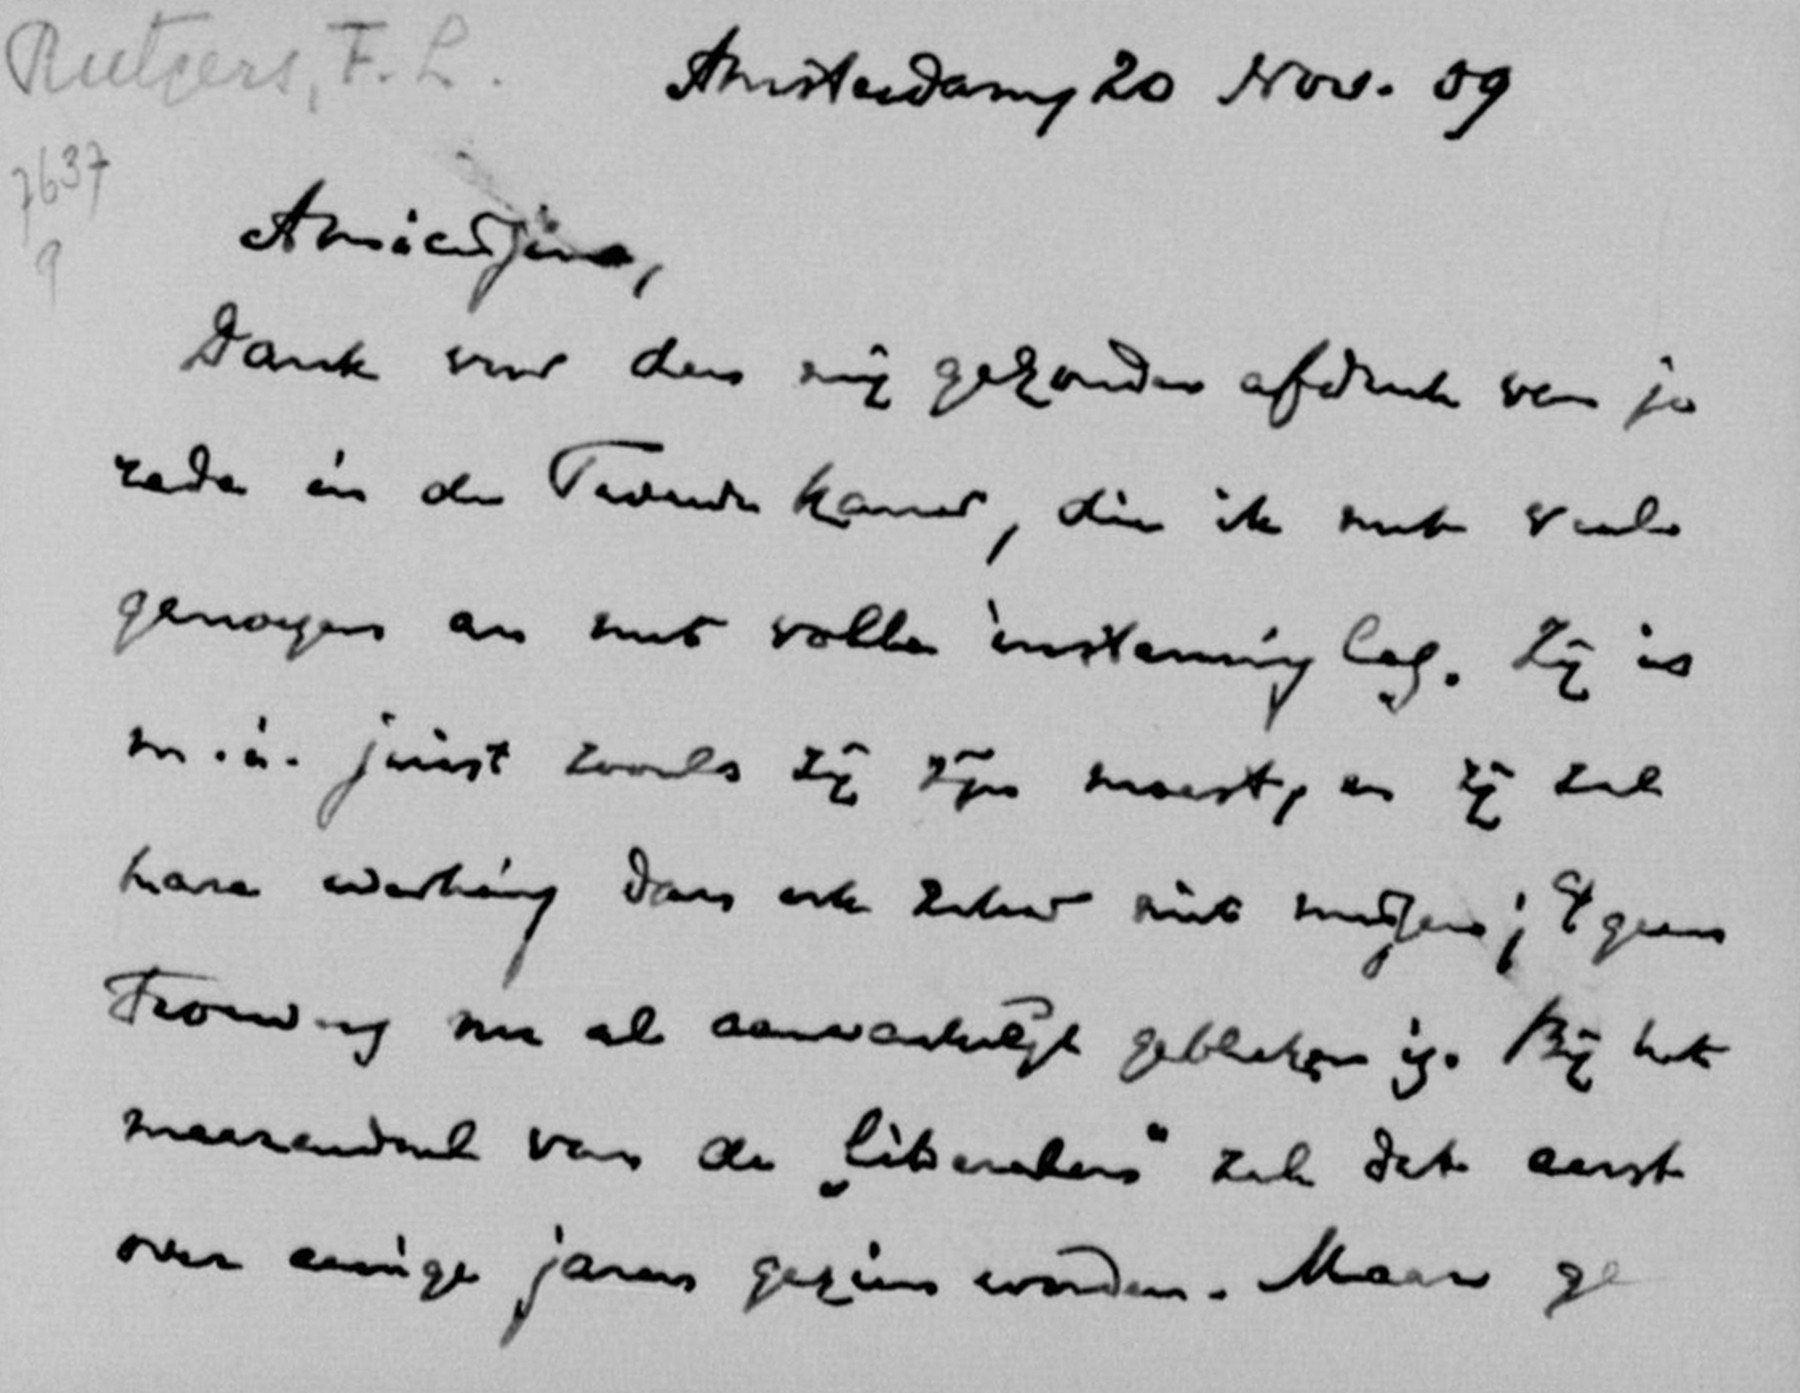 Rutgers, F. L.
Amsterdam, 20 Nov. 09
7637
9
Amicissime,
Dank voor den mij gezonden afdruk van je
rede in de Tweede Kamer, die ik met veel
genoegen en met volle instemming las. Zij is
m.i. juist zooals zij zijn moest, en zij zal
hare werking dan ook zeker niet missen; 't geen
nu al aanvankelijk gebleken is. Bij het
meerendeel van de „liberalen" zal dat eerst
over eenige jaren gezien worden. Maar ge